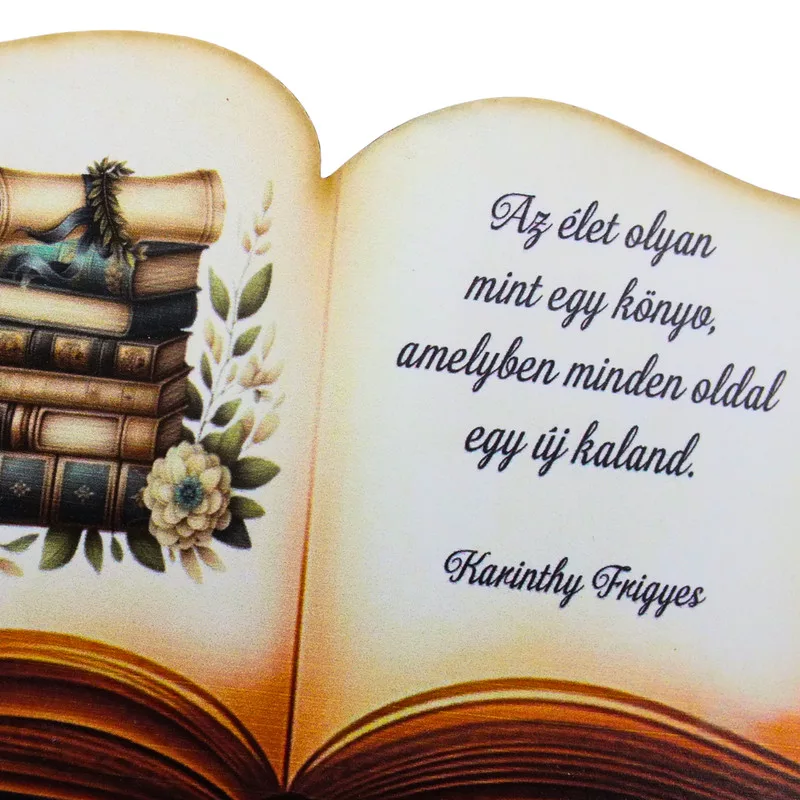 Az élet olyan
mint egy könyv,
amelyben minden oldal
egy új kaland.
Karinthy Frigyes